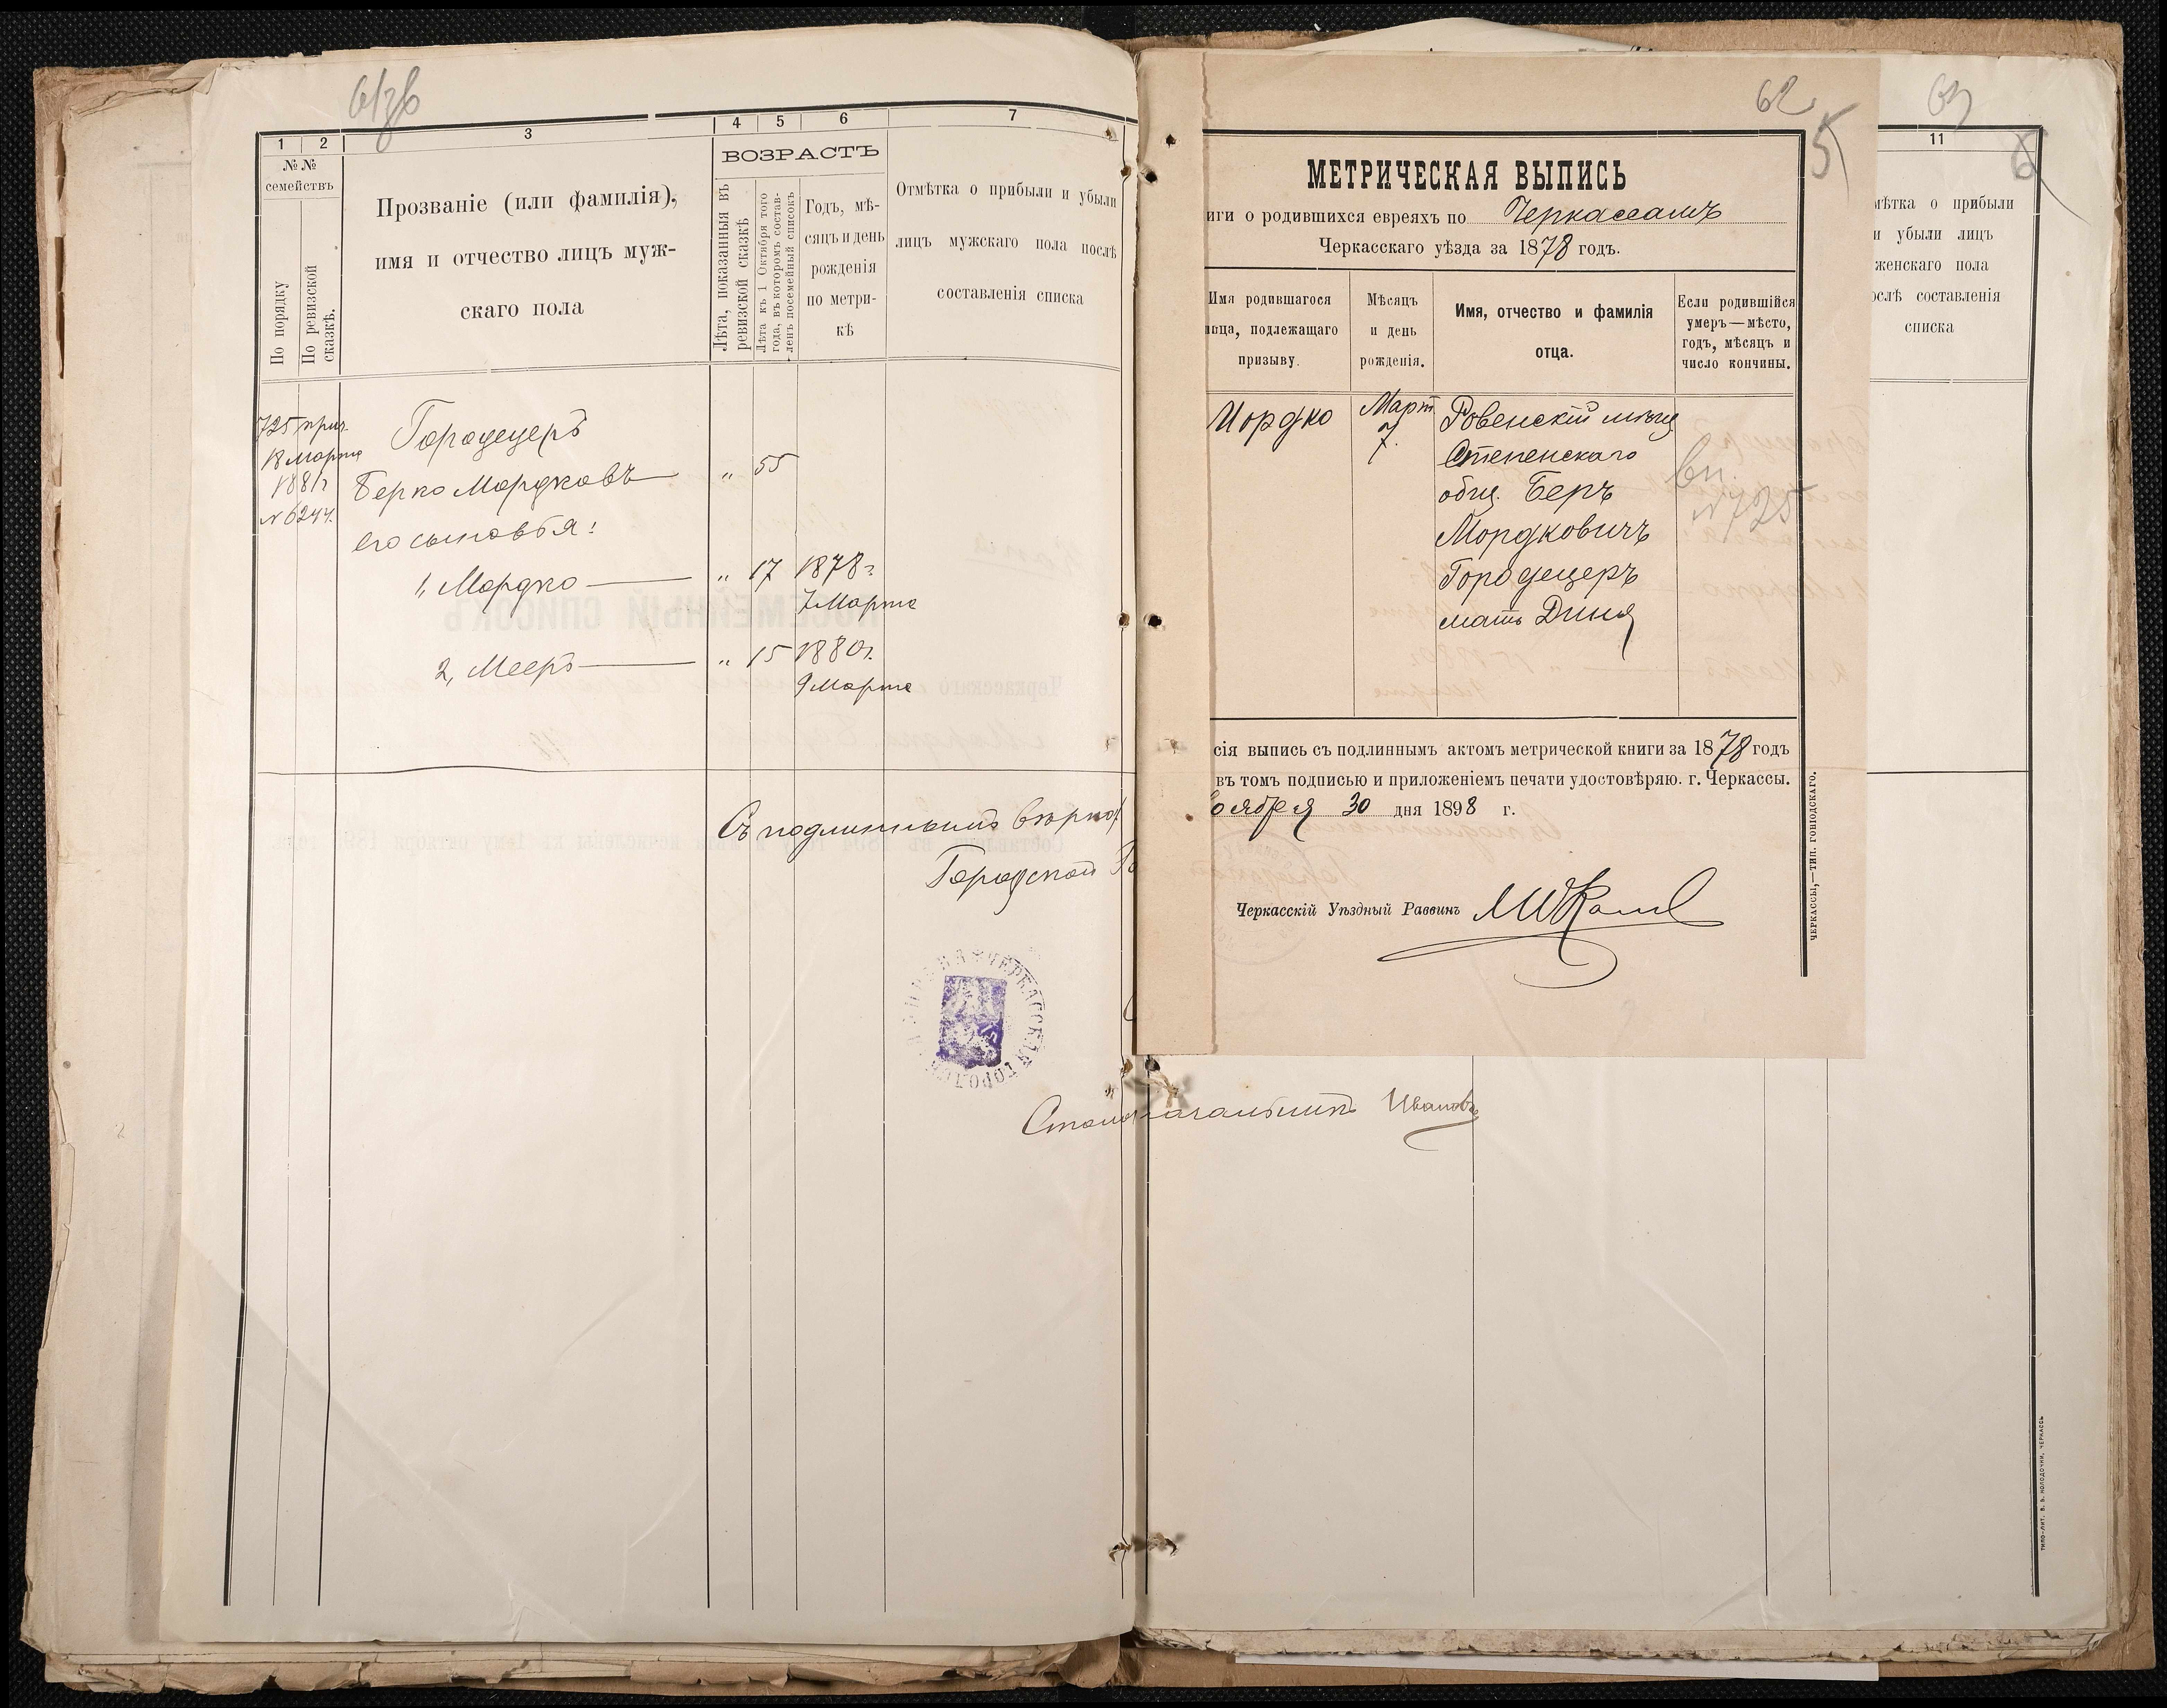 61зв
1 2 3 4 5 6 7
№ №
семействъ
По порядку
По ревизской
сказкѣ.
Прозваніе (или фамилія),
имя и отчество лицъ муж-
скаго пола
ВОЗРАСТЪ
Лѣта, показанныя въ
ревизской сказкѣ
Лѣта къ 1 Октября того
года, въ которомъ состав-
ленъ посемейный списокъ
Годъ, мѣ-
сяцъ и день
рожденія
по метри-
кѣ
Отмѣтка о прибыли и убыли
лицъ мужскаго пола послѣ
составленія списка
725 прич
18 марта
1881г
№ 6244.
Городецеръ
Берко Мордковъ „ 55
его сыновья:
1, Мордко „ 17 1878г
7 Марта
2, Мееръ „ 15 1880г.
9 Марта
Съ подлиннымъ вѣрно
Городской
ЧЕРКАССКАЯ ГОРОДСК
Столоначальникъ Ивановъ
62
5
МЕТРИЧЕСКАЯ ВЫПИСЬ
иги о родившихся евреяхъ по Черкассамъ
Черкасскаго уѣзда за 1878 годъ.
Имя родившагося
ица, подлежащаго
призыву.
Мѣсяцъ
и день
рожденія.
Имя, отчество и фамилія
отца.
Если родившійся
умеръ—мѣсто,
годъ, мѣсяцъ и
число кончины.
Мордко
Март
7.
Ровенскій мѣщ
Степенскаго
общ. Беръ
Мордковичъ
Городецеръ
мать Диня
вп.
№ 725
сія выпись съ подлиннымъ актомъ метрической книги за 1878 годъ
въ томъ подписью и приложеніемъ печати удостовѣряю. г. Черкассы.
оября 30 дня 1898 г.
Черкасскій Уѣздный Раввинъ
ЧЕРКАССЫ,—ТИП. ГОНІОДСКАГО.
63
6
11
мѣтка о прибыли
и убыли лицъ
женскаго пола
ослѣ составленія
списка
ТИПО-ЛИТ. В. В. КОЛОДОЧКИ, ЧЕРКАССЫ